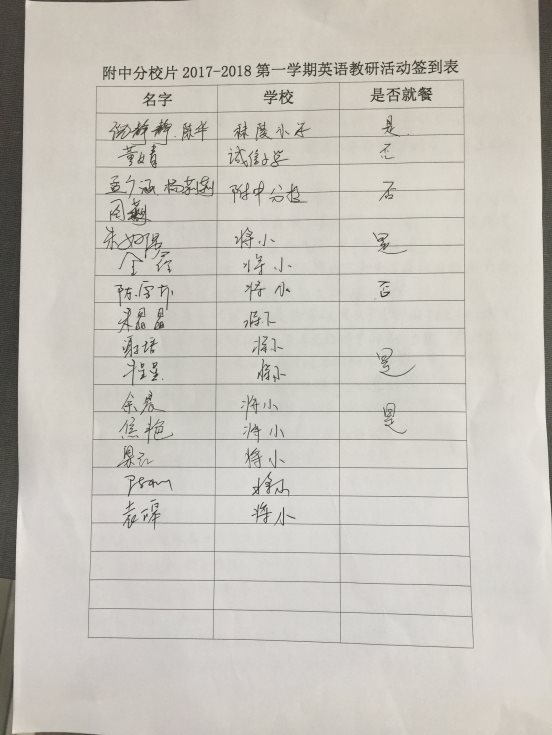 附中分校片 2017-2018 第一学期英语教研活动签到表
名字 学校 是否就餐
倪静静、陈华 秣陵小学 是
董婧 诚信小学 否
孟令涵 杨莉莉 附中分校 否
周
朱如阳 将小 是
金 将小
陈 将小 否
朱晶晶 将小
谢培 将小
将小 是
余晨 将小 是
侯艳 将小
将小
将小
袁 将小